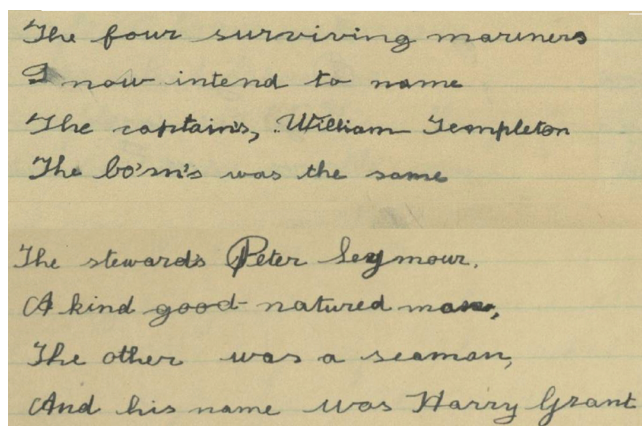 The four surviving mariners
I now intend to name
The captain's, William Templeton
The bo'sn's was the same
The stewards Peter Seymour.
A kind good-natured man,
The other was a seaman,
And his name was Harry Grant